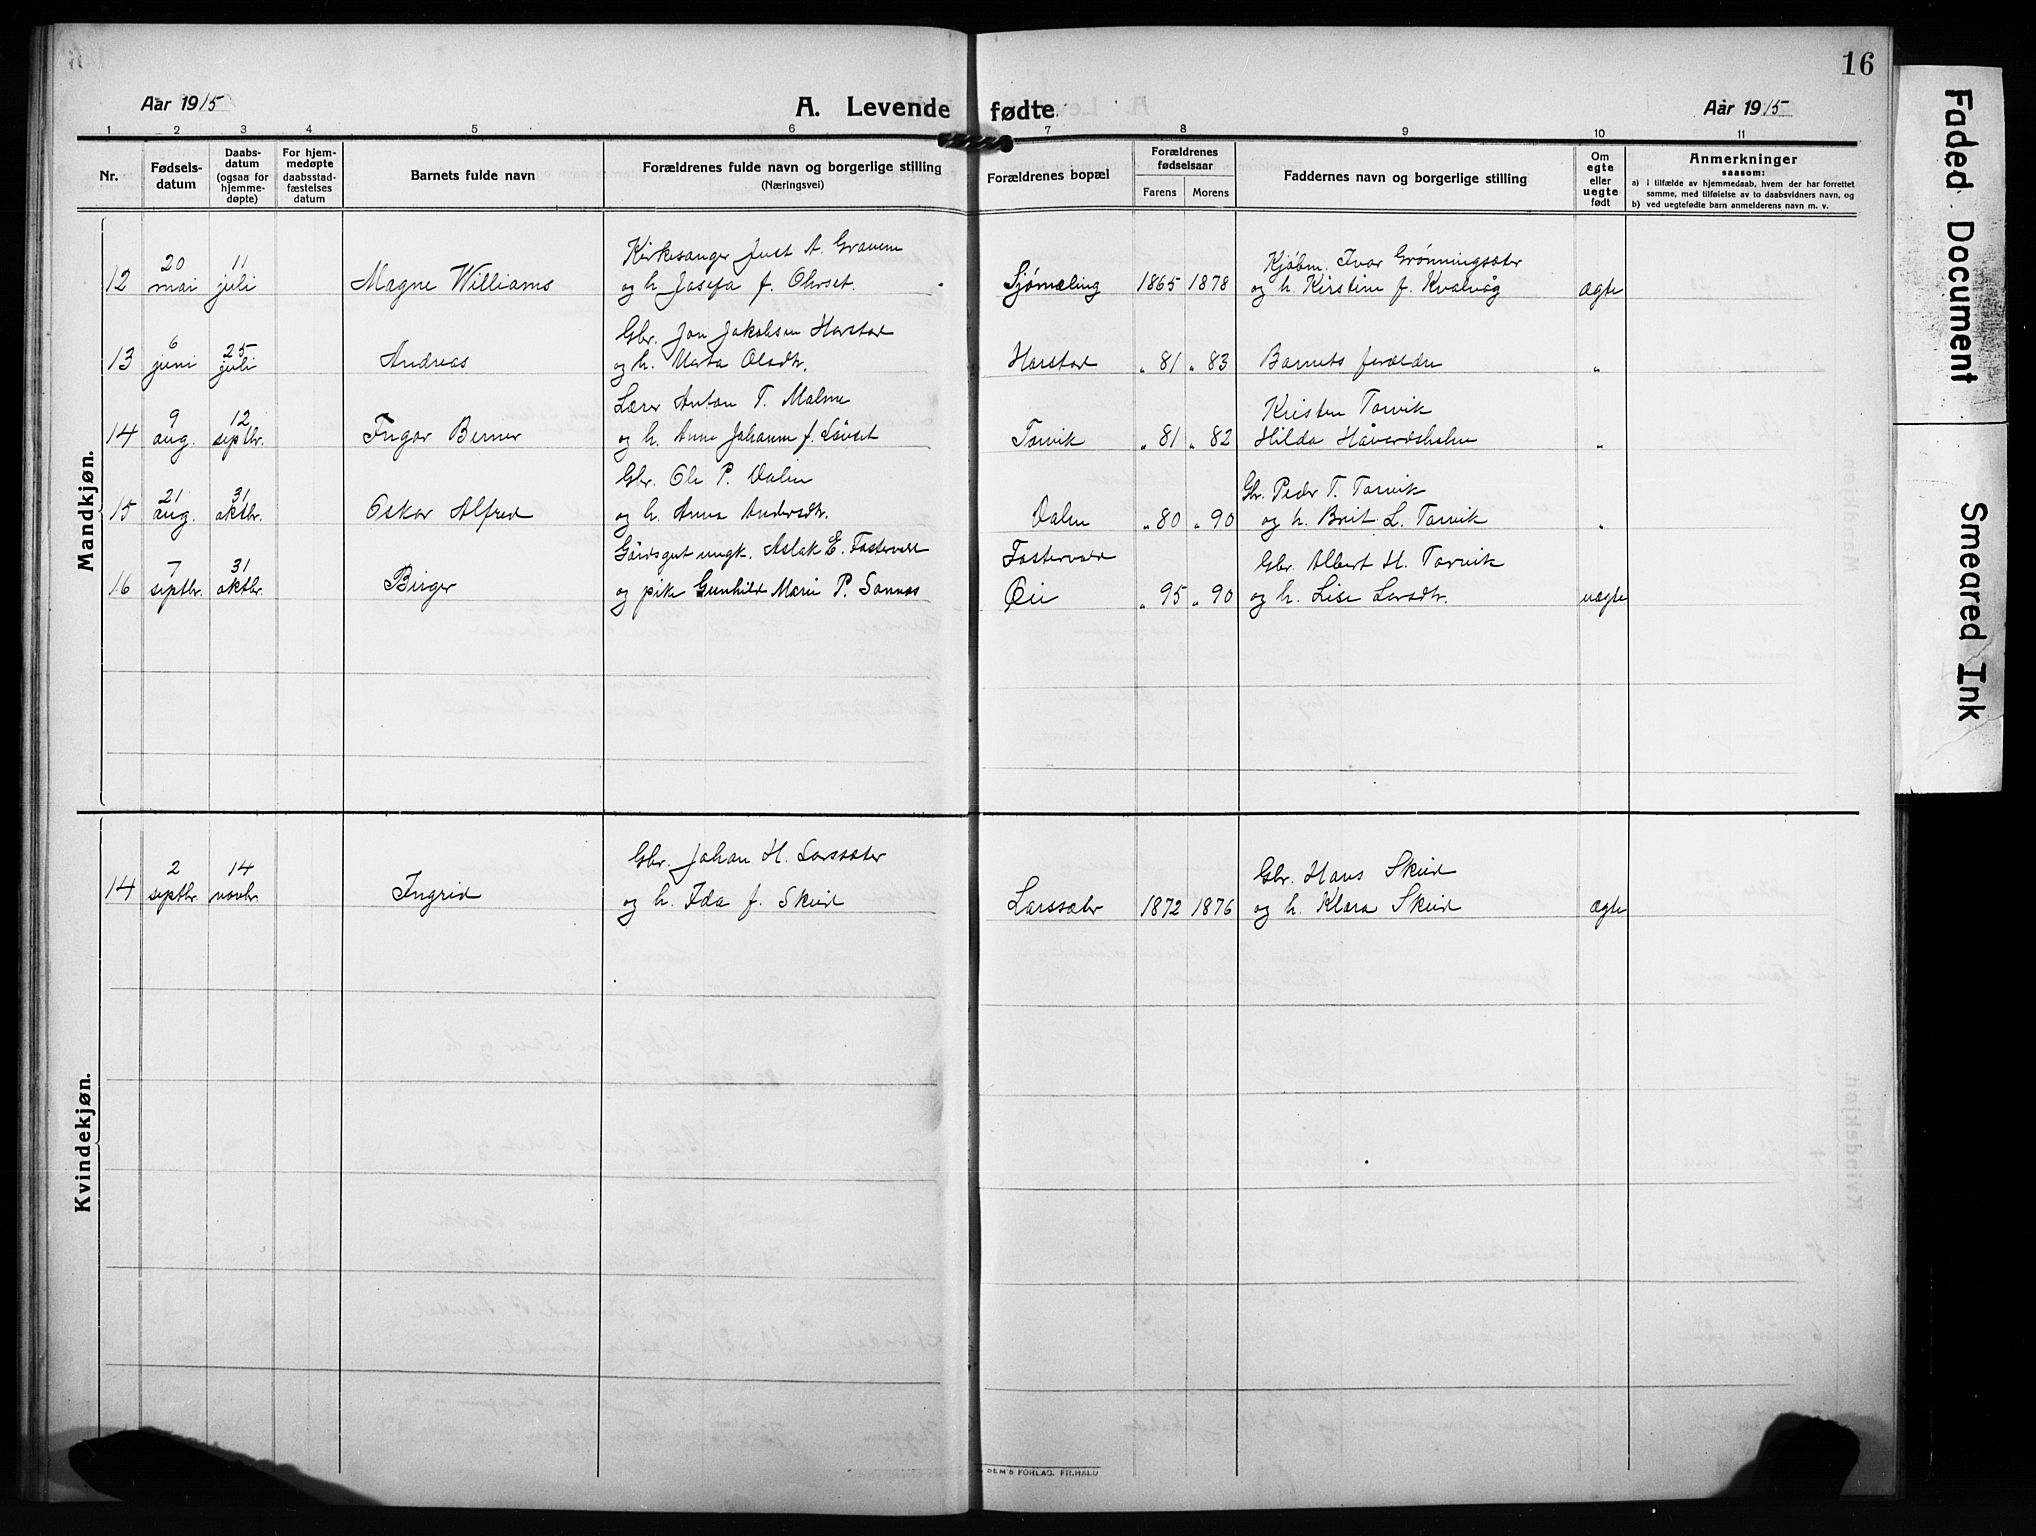 16
Aar 1915
A. Levende fødte.
Aar 1915
1 2 3 4 5 6 7 8 9 10 11
Nr.
Fødsels-
datum
Daabs-
datum
(ogsaa for
hjemme-
døpte)
For hjem-
medøpte
daabsstad-
fæstelses
datum
Barnets fulde navn
Forældrenes fulde navn og borgerlige stilling
(Næringsvei)
Forældrenes bopæl
Forældrenes
fødselsaar
Farens Morens
Faddernes navn og borgerlige stilling
Om
egte
eller
uegte
født
Anmerkninger
saasom:
a) i tilfælde av hjemmedaab, hvem der har forrettet
samme, med tilføielse av to daabsvidners navn, og
b) ved uegtefødte barn anmelderens navn m. v.
Mandkjøn.
20 11 Kirkesanger Just A. Gravem Kjøbm. Ivar Grønningsæter
12 mai juli Magne Williams og h. Josefa f. Ohrset. Sjømæling 1865 1878 og h. Kirstine f. Kvalvåg ægte
6 25 Gbr. Jon Jakobsen Harstad
13 juni juli Andreas og h. Marta Olsdtr. Harstad " 81 " 83 Barnets forældre "
9 12 Lærer Anton T. Malme Kristen Torvik
14 aug. septbr. Ingar Berner og h. Anne Johanne f. Løvset Torvik " 81 " 82 Hilda Håvardsholm "
21 31 Gbr. Ole P. Valen Gbr. Peder T. Torvik
15 aug. oktbr. Oskar Alfred og h. Anna Andersdtr. Valen " 80 " 90 og h. Brit L. Torvik "
7 31 Gårdsgut ungk. Aslak E. Fostervold Fostervold Gbr. Albert H. Torvik
16 septbr. oktbr. Birger og pike Gunhild Marie P. Sannæs Øie " 95 " 90 og h. Lise Larsdtr. uægte
Kvindekjøn.
2 14 Gbr. Johan H. Larssæter Gbr. Hans Skeid
14 septbr. novbr. Ingrid og h. Ida f. Skeid Larssæter 1872 1876 og h. Klara Skeid ægte
SEM'S FORLAG. FR.HALD
Faded Document
Smeared Ink